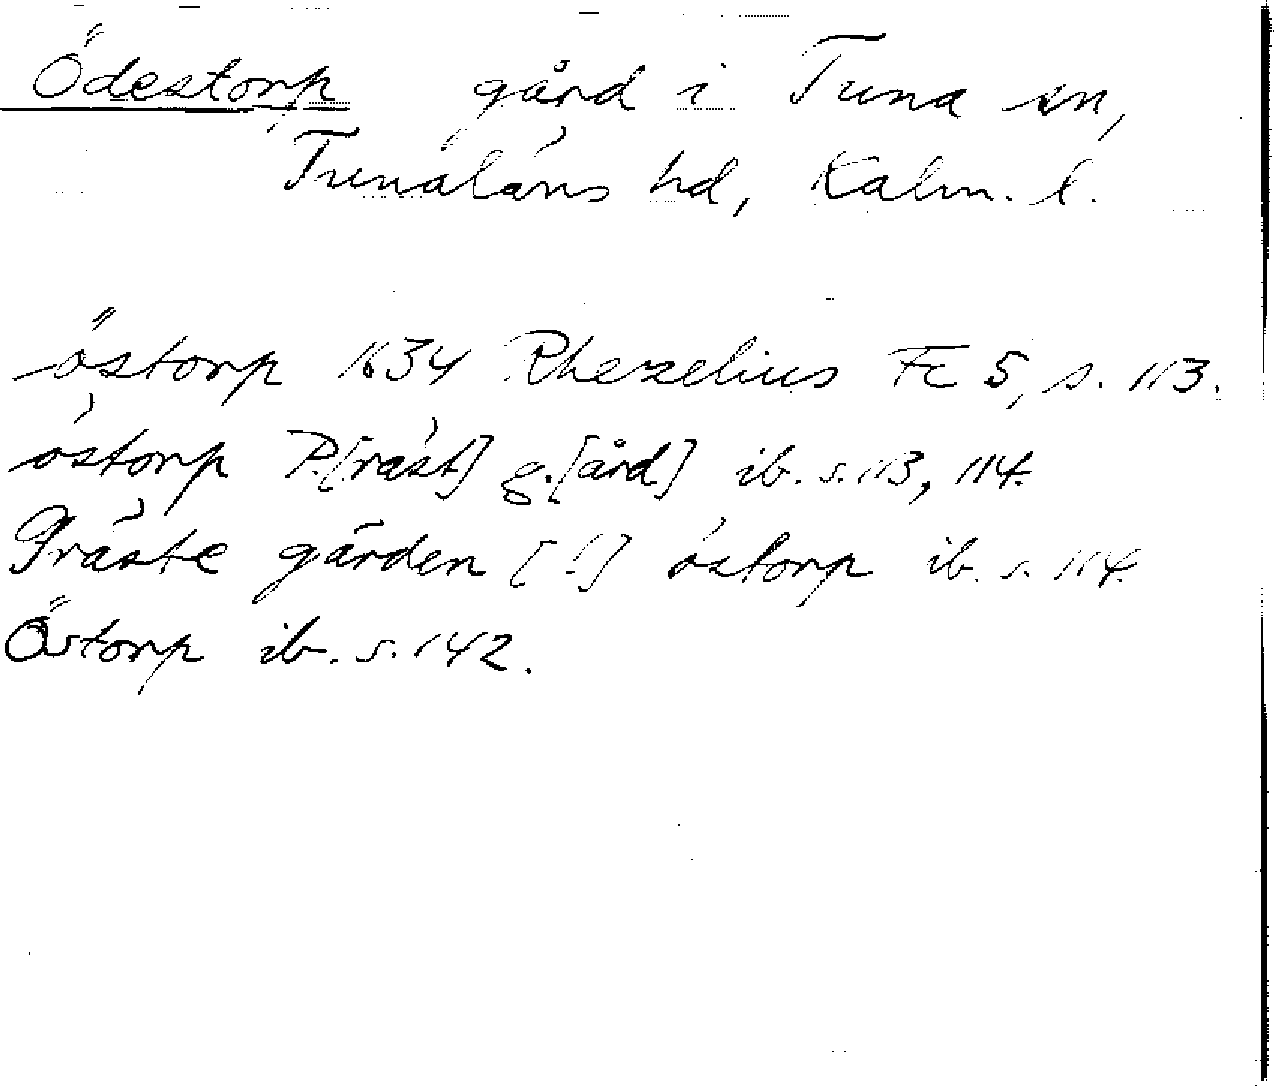 Ödestorp gård i Tuna sn,
Tunaläns hd, Kalm. l.
östorp 1634 Rhezelius Fc 5, s. 113.
óstorp P.[räst] g.[ård] ib. s. 113, 114.
Präste gården [!] óstorp ib. s. 114.
Östorp ib. s. 142.